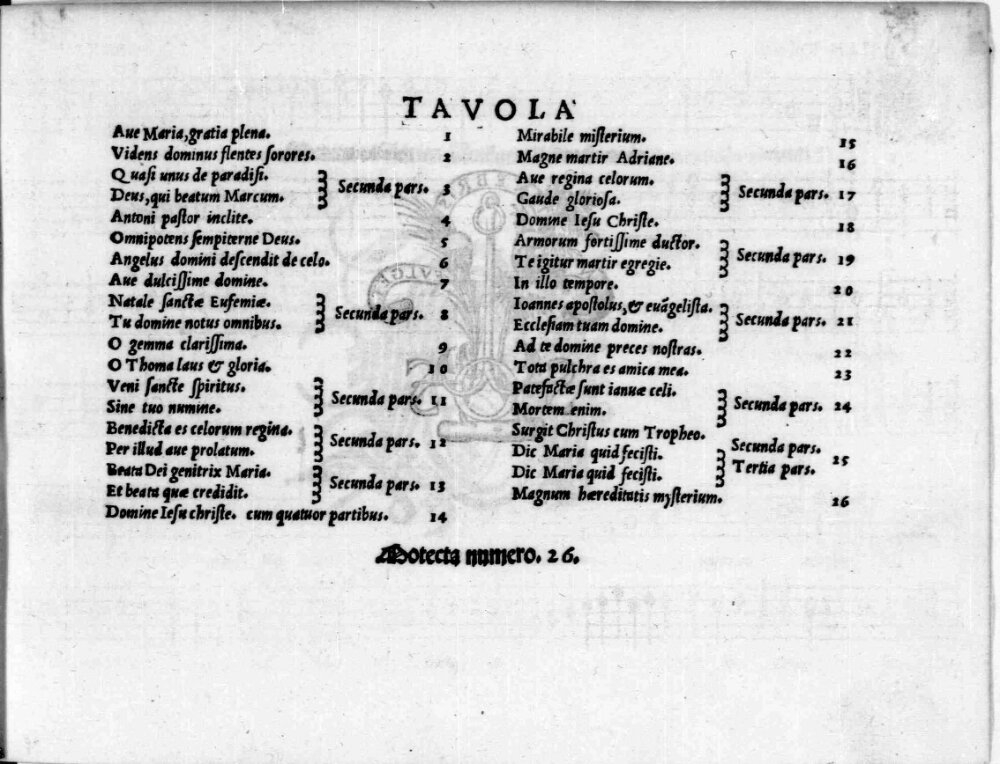 TAVOLA
Aue Maria, gratia plena. 1
Videns dominus flentes sorores. 2
Quasi unus de paradisi.
Secunda pars. 3
Deus, qui beatum Marcum.
Antoni pastor inclite. 4
Omnipotens sempiterne Deus. 5
Angelus domini descendit de celo. 6
Aue dulcissime domine. 7
Natale sanctæ Eufemiæ.
Secunda pars. 8
Tu domine notus omnibus.
O gemma clarissima. 9
O Thoma laus & gloria. 10
Veni sancte spiritus.
Secunda pars. 11
Sine tuo numine.
Benedicta es celorum regina.
Secunda pars. 12
Per illud aue prolatum.
Beata Dei genitrix Maria.
Secunda pars. 13
Et beata quæ credidit.
Domine Iesu christe. cum quatuor partibus. 14
Mirabile misterium. 15
Magne martir Adriane. 16
Aue regina celorum.
Secunda pars. 17
Gaude gloriosa.
Domine Iesu Christe. 18
Armorum fortissime ductor.
Secunda pars. 19
Te igitur martir egregie.
In illo tempore. 20
Ioannes apostolus, & euãgelista.
Secunda pars. 21
Ecclesiam tuam domine.
Ad te domine preces nostras. 22
Tota pulchra es amica mea. 23
Patefactæ sunt ianuæ celi.
Secunda pars. 24
Mortem enim.
Surgit Christus cum Tropheo.
Secunda pars.
Dic Maria quid fecisti.
25
Dic Maria quid fecisti.
Tertia pars.
Magnum hæreditatis mysterium. 26
Motecta numero. 26.